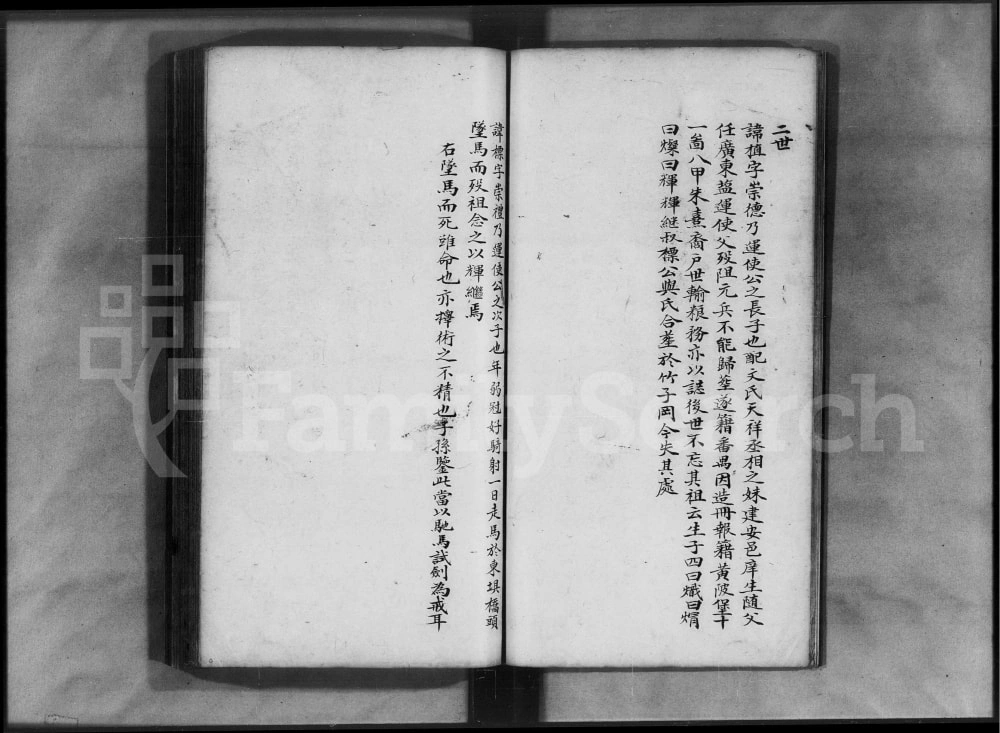 二世
諱植字崇德乃運使公之長子也配文氏天祥丞相之妹建安邑庠生隨父
任廣東鹽運使父歿阻元兵不能歸塟遂籍番禺因造冊報籍黃陂堡十
一啚八甲朱熹裔戶世輸粮務亦以誌後世不忘其祖云生子四曰熾曰焆
曰燦曰輝輝継叔標公與氏合塟於竹子岡今失其處
諱標字崇禮乃運使公之次子也年弱冠好騎射一日走馬於東埧橋頭
墜馬而歿祖念之以輝繼焉
右墜馬而死雖命也亦擇術之不精也子孫鑒此當以馳馬試劍為戒耳
FamilySearch